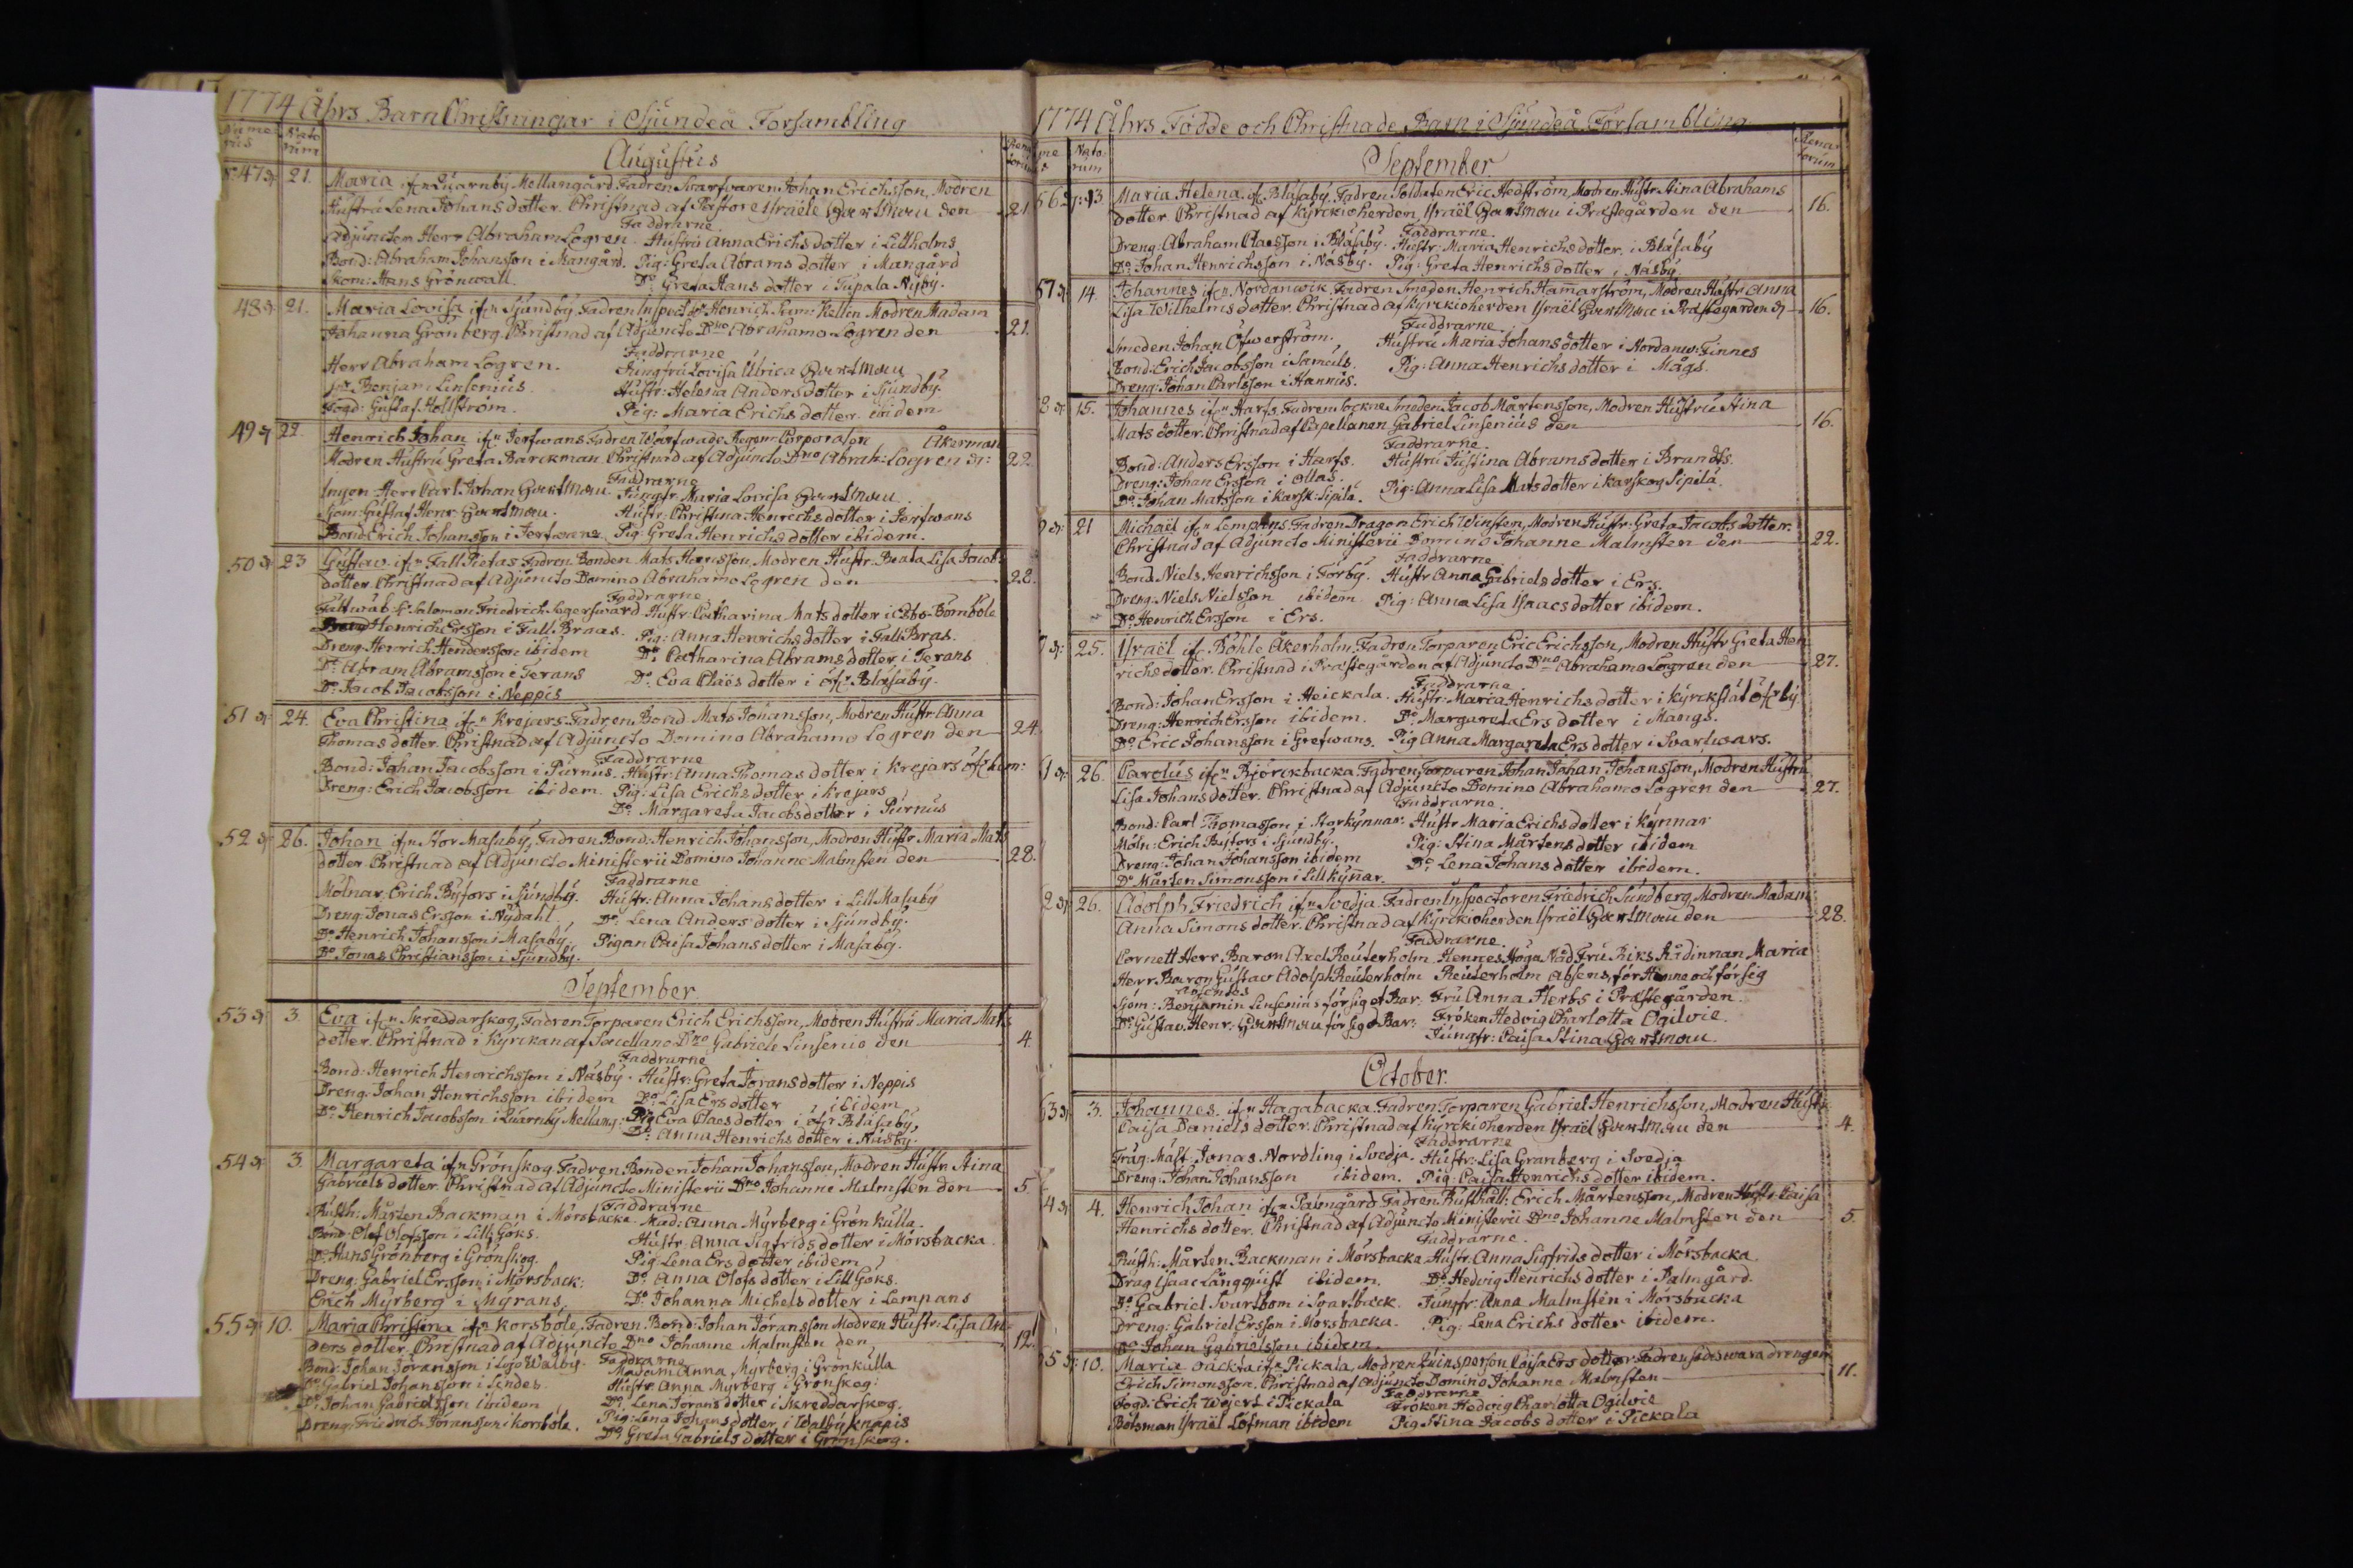 1774 Åhrs Barn Christningar i Sjundeå Forsambling
Nume rus
Nato rum
Renatorum
Augustus
No 47 21. Maria ifrn Quarnby Mellangård. Fadren Svarfvaren Johan Erichsson, Modren
Hustru Lena Johans dotter. Christnad af Pastore Israële Gartman den 21.
Faddrarne
Adjuncten Herr Abraham Logren. Hustru Anna Erichs dotter i Lillholms
Bond: Abraham Johansson i Mangård. Pig: Greta Abrams dotter i Mangård
Skom: Hans Grönwall. Do Greta Hans dotter i Tupala Nyby.
48 21. Maria Lovisa ifrn Sjundby. Fadren Inspect: Hr Henrich Sam: Kellen Modren Madam
Johanna Grönberg. Christnad af Adjuncto Dno Abrahamo Logren den 21.
Faddrarne
Herr Abraham Logren. Jungfru Lovisa Ulrica Gartman
Benjam: Linsenius. Hustr: Helena Anders dotter i Sjundby.
Fogd: Gustaf Hollström. Pig: Maria Erichs dotter ibidem
49 22 Henrich Johan ifrn Jerfwans Fadren Wärfwade Regem: Corporalen Åkerman
Modren Hustru Greta Barckman. Christnad af Adjuncto Dno Abrah: Logren d: 22.
Faddrarne
Herr Carl Johan Gartman. Jungfr: Maria Lovisa Gartman
Sjom: Gustaf Henr: Gartman. Hustr: Christina Henrichs dotter i Jerfwans
Bond Erich Johansson i Jerfwans Pig: Greta Henrichs dotter ibidem.
50 23 Gustav ifrn Fall Pietas Fadren Bonden Mats Hansson, Modren Hustr: Beata Lisa Jacobs
dotter. Christnad af Adjuncto Domino Abrahamo Logren den 28.
Faddrarne
Fältwäb: Hr Salomon Friedrich Segerswärd. Hustr: Catharina Mats dotter i Esbo-Bömböle
Henrich Ersson i Fall Braas. Pig: Anna Henrichs dotter i Fall Bras.
Dreng Henrich Hendersson ibidem Do Catharina Abrams dotter i Terans
Do Abram Abramsson i Terans Do Eva Claës dotter i öfr Blåsaby.
Do Jacob Jacobsson i Neppis
51 24. Eva Christina ifrn Krejars. Fadren Bond Mats Johansson, Modren Hustr Anna
Thomas dotter. Christnad af Adjuncto Domino Abrahamo Logren den 24.
Faddrarne
Bond: Johan Jacobsson i Purnus. Hustr: Anna Thomas dotter i Krejars
Dreng: Erich Jacobsson ibidem. Pig: Lisa Erichs dotter i Krejars
Do Margareta Jacobs dotter i Purnus
52 26. Johan ifrn Stor Masuby, Fadren Bond: Henrich Johansson, Modren Hustr Maria Mats
dotter. Christnad af Adjuncto Ministerii Domino Johanne Malmsten den 28.
Faddrarne
Mölnar: Erich Byfors i Sjundby. Hustr: Anna Johans dotter i Lill Masuby
Dreng: Jonas Ersson i Nydahl. Do Lena Anders dotter i Sjundby.
Do Henrich Johansson i Masaby. Pigan Caisa Johans dotter i Masaby.
Do Jonas Christiansson i Sjundby.
September
53 3 Eva ifrn Skreddarskog, Fadren Torparen Erich Erichsson, Modren Hustru Maria Mats
dotter. Christnad i Kyrckan af Sacellano Dno Gabriele Linsenio den 4.
Faddrarne
Bond: Henrich Henrichsson i Näsby. Hustr: Greta Jorans dotter i Neppis
Dreng: Johan Henrichsson ibidem Do Lisa Ers dotter ibidem
Do Henrich Jacobsson i Quarnby Mellang: Pig Eva Claes dotter i öfr Blåsaby,
Do Anna Henrichs dotter i Näsby.
54 3. Margareta ifrn Grönskog Fadren Bonden Johan Johansson, Modren Hustr Stina
Gabriels dotter. Christnad af Adjuncto Ministerii Dno Johanne Malmsten den 5
Faddrarne
Rusth: Mårten Backman i Mörsbacka. Mad: Anna Myrberg i Grön Kulla.
Bond: Olof Olofsson i Lill Göks. Hustr: Anna Sigfrids dotter i Mörsbacka.
Do Hans Grönberg i Grönskog. Pig: Lena Ers dotter ibidem
Dreng: Gabriel Ersson i Mörsback: Do Anna Olofs dotter i Lill Göks.
Erich Myrberg i Myrans. Do Johanna Michels dotter i Lempans
55 10. Maria Christina ifrn Korsböle. Fadren Bond: Johan Joransson Modren Hustr: Lisa An-
ders dotter. Christnad af Adjuncto Dno Johanne Malmsten den 12.
Bond: Johan Joransson i Lojo Walby. Faddrarne
Madam Anna Myrberg i Grönkulla
Do Gabriel Johansson i Lindes. Hustr Anna Myrberg i Grönskog:
Do Johan Gabrielsson ibidem Do Lena Jorans dotter i Skreddarskog.
Dreng Friedrich Joransson i Korsböle. Pig: Lena Johans dotter i Walby Knapis
Do Greta Gabriels dotter i Grönskog.
1774 Åhrs Födde och Christnade Barn i Sjundeå Forsambling
Nato rum
Renatorum
September
56 13. Maria Helena ifr Blåsaby. Fadren Soldaten Eric Hedström, Modren Hustr Stina Abrahams
dotter Christnad af Kyrckioherden Israël Gartman i Præstegården den 16.
Faddrarne.
Dreng: Abraham Claesson i Blåsaby. Hustr: Maria Henrichs dotter i Blåsaby
Do Johan Henrichsson i Näsby. Pig: Greta Henrichs dotter i Näsby.
57 14. Johannes ifrn Nordanwik. Fadren Smeden Henrich Hammarström, Modren Hustr Anna
Lisa Wilhelms dotter. Christnad af Kyrckioherden Israël Gartman i Præstegården d 16.
Faddrarne.
Smeden Johan Öfwerström. Hustru Maria Johans dotter i Nordanw: Finnes
Bond: Erich Jacobsson i Samuls. Pig: Anna Henrichs dotter i Mågs.
Dreng: Johan Carlsson i Hannus.
8 15. Johannes ifrn Harfs. Fadren Sockne Smeden Jacob Mårtensson, Modren Hustru Stina
Mats dotter. Christnad af Capellanen Gabriel Linsenius den 16.
Faddrarne.
Bond: Anders Ersson i Harfs. Hustru Justina Abrams dotter i Brandts.
Dreng: Johan Ersson i Ollas. Pig: Anna Lisa Mats dotter i Karskog Sipilä.
Do Johan Matsson i Karsk: Sipilä.
9 21 Michaël ifrn Lempans. Fadren Dragon Erich Winsten, Modren Hustr: Greta Jacobs dotter.
Christnad af Adjuncto Ministerii Domino Johanne Malmsten den 22.
Faddrarne
Bond Niels Henrichsson i Förby. Hustr Anna Gabriels dotter i Ers.
Dreng: Niels Nielsson ibidem Pig: Anna Lisa Isaacs dotter ibidem.
Do Henrich Ersson i Ers.
25. Israël ifr Böhle Åkerholm. Fadren Torparen Eric Erichsson, Modren Hustr Greta Hen
richs dotter. Christnad i Præstegården af Adjuncto Dno Abrahamo Logren den 27.
Faddrarne
Bond: Johan Ersson i Heickala. Hustr: Maria Henrichs dotter i Kyrckstät öfrby
Dreng: Henrich Ersson ibidem. Do Margareta Ers dotter i Mangs.
Do Eric Johansson i Grefwans. Pig Anna Margareta Ers dotter i Svartwars.
1 26. Carolus ifrn Björckbacka. Fadren Torparen Johan Johan Johansson, Modren Hustru
Lisa Johans dotter. Christnad af Adjuncto Domino Abrahamo Logren den 27.
Faddrarne.
Bond: Carl Thomasson i Storkynnar. Hustr Maria Erichs dotter i Kynnar
Möln: Erich Byfors i Sjundby. Pig: Stina Mårtens dotter ibidem
Dreng: Johan Johansson ibidem Do Lena Johans dotter ibidem.
Do Mårten Simonsson i Lillkynar.
2 26. Adolph Friedrich ifrn Svedja. Fadren Inspectoren Friedrich Sundberg, Modren Madam
Anna Simons dotter. Christnad af Kyrckioherden Israël Gartman den 28.
Faddrarne.
Cornett Herr Baron Axel Reuterholm. Hennes Höga Nåd Fru Riks Rådinnan Maria
Herr Baron Gustav Adolph Reuterholm Reuterholm absens, för Henne och för sig
absentes
Sjöm: Benjamin Linsenius för sig et Bar. Fru Anna Herbs i Præstegården.
Do Gustav Henr: Gartman för sig et Bar: Fröken Hedvig Charlotta Ogilvie.
Jungfr: Caisa Stina Gartman.
October.
63 3. Johannes ifrn Hagabacka. Fadren Torparen Gabriel Henrichsson, Modren Hustr
Caisa Daniels dotter. Christnad af Kyrckioherden Israël Gartman den 4.
Faddrarne
Träg: Mäst: Jonas Nordling i Svedja. Hustr: Lisa Granberg i Svedja
Dreng: Johan Johansson ibidem. Pig: Caisa Henrichs dotter ibidem.
4 4. Henrich Johan ifrn Palmgård Fadren Rusthåll: Erich Mårtensson, Modren Hustr Caisa
Henrichs dotter. Christnad af Adjuncto Ministerii Dno Johanne Malmsten den 5.
Faddrarne.
Rusth: Mårten Backman i Mörsbacka Hustr: Anna Sigfrids dotter i Mörsbacka.
Drag Isaac Långquist ibidem. Do Hedvig Henrichs dotter i Palmgård.
Do Gabriel Svartbom i Svartback. Jungfr: Anna Malmstén i Mörsbacka
Dreng: Gabriel Ersson i Mörsbacka. Pig: Lena Erichs dotter ibidem.
Do Johan Gabrielsson ibidem.
5 10. Maria oäckta ifrn Pickala, Modren Quinsperson Caisa Ers dotter. Fadren sades wara drengen
Erich Simonsson. Christnad af Adjuncto Domino Johanne Malmsten 11.
Faddrarne
Fogd: Erich Weijert i Pickala Fröken Hedvig Charlotta Ogilvie
Båtsman Israël Löfman ibidem Pig Stina Jacobs dotter i Pickala